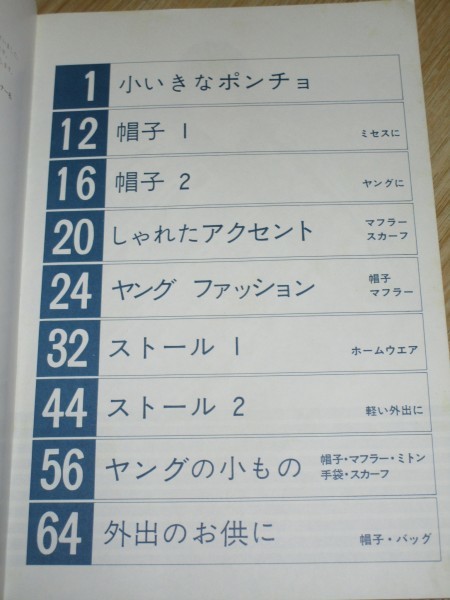 1 小いきなポンチョ
12 帽子 1 ミセスに
16 帽子 2 ヤングに
20 しゃれたアクセント マフラー
スカーフ
24 ヤング ファッション 帽子
マフラー
32 ストール 1 ホームウエア
44 ストール 2 軽い外出に
56 ヤングの小もの 帽子・マフラー・ミトン
手袋・スカーフ
64 外出のお供に 帽子・バッグ